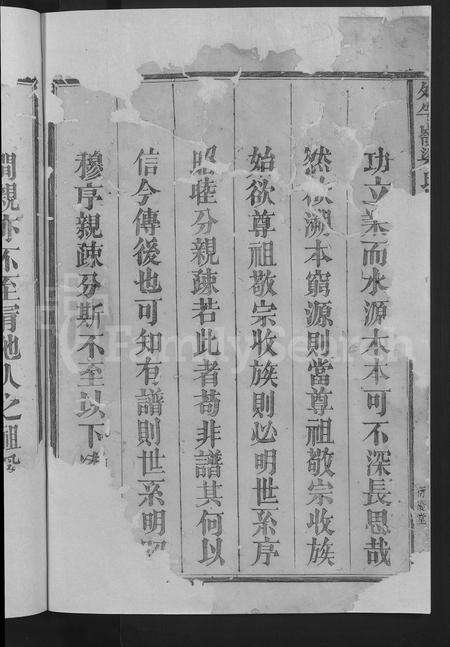 功立業而水源木本可不深長思哉
然欲溯本窮源則當尊祖敬宗收族
始欲尊祖敬宗收族則必明世系序
昭穆分親疎若此者苟非譜其何以
信今傳後也可知有譜則世系明
穆序親疎分斯不至以下
間親亦不至冐他人之祖
FamilySearch